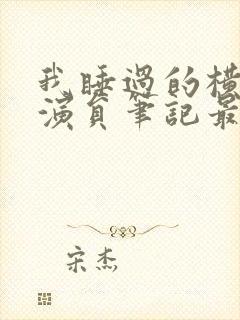 我睡過的橫
演員筆記最
宋杰